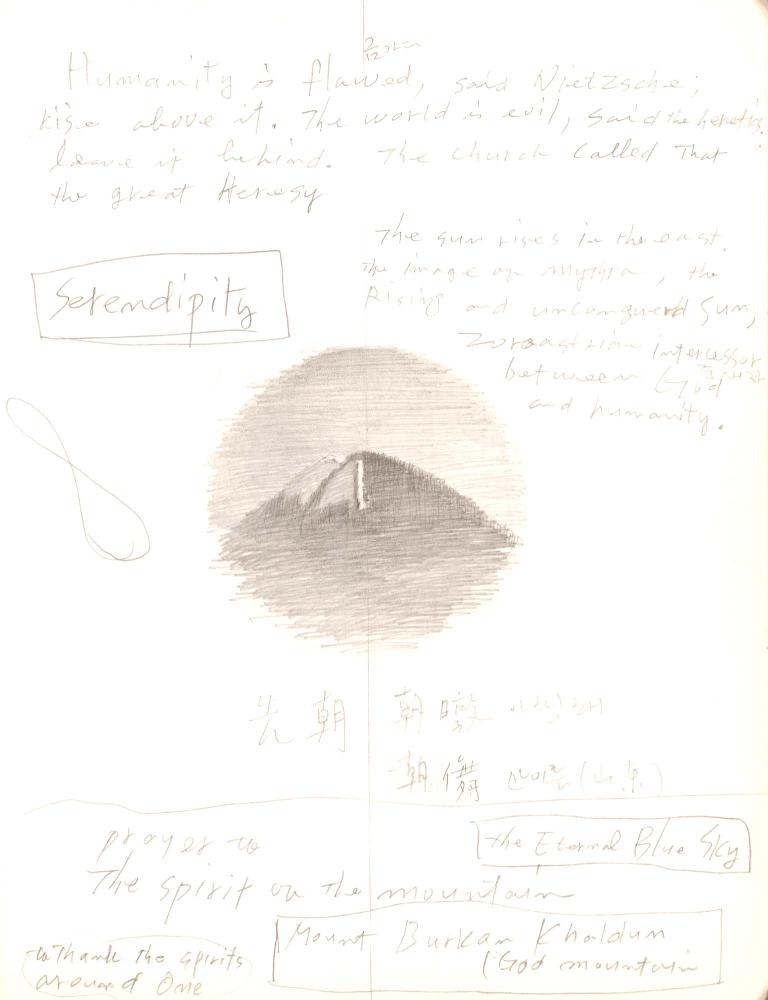 금가다
Humanity is flawed, said Nietzsche;
rise above it. The world is evil, said the heretics,
leave it behind. The church called That
the great Heresy
The sun rises in the east.
The image on mythra, the
Rising and unconquerd Sun,
Zoroastrian intercessor
between God
and humanity.
Serendipity
先朝 朝暾 아침해
朝 산이름 (山東)
prayer to
The spirit on the mountain
the Eternal Blue Sky
to Thank the spirits
around One
Mount Burkan Khaldun
(God mountain